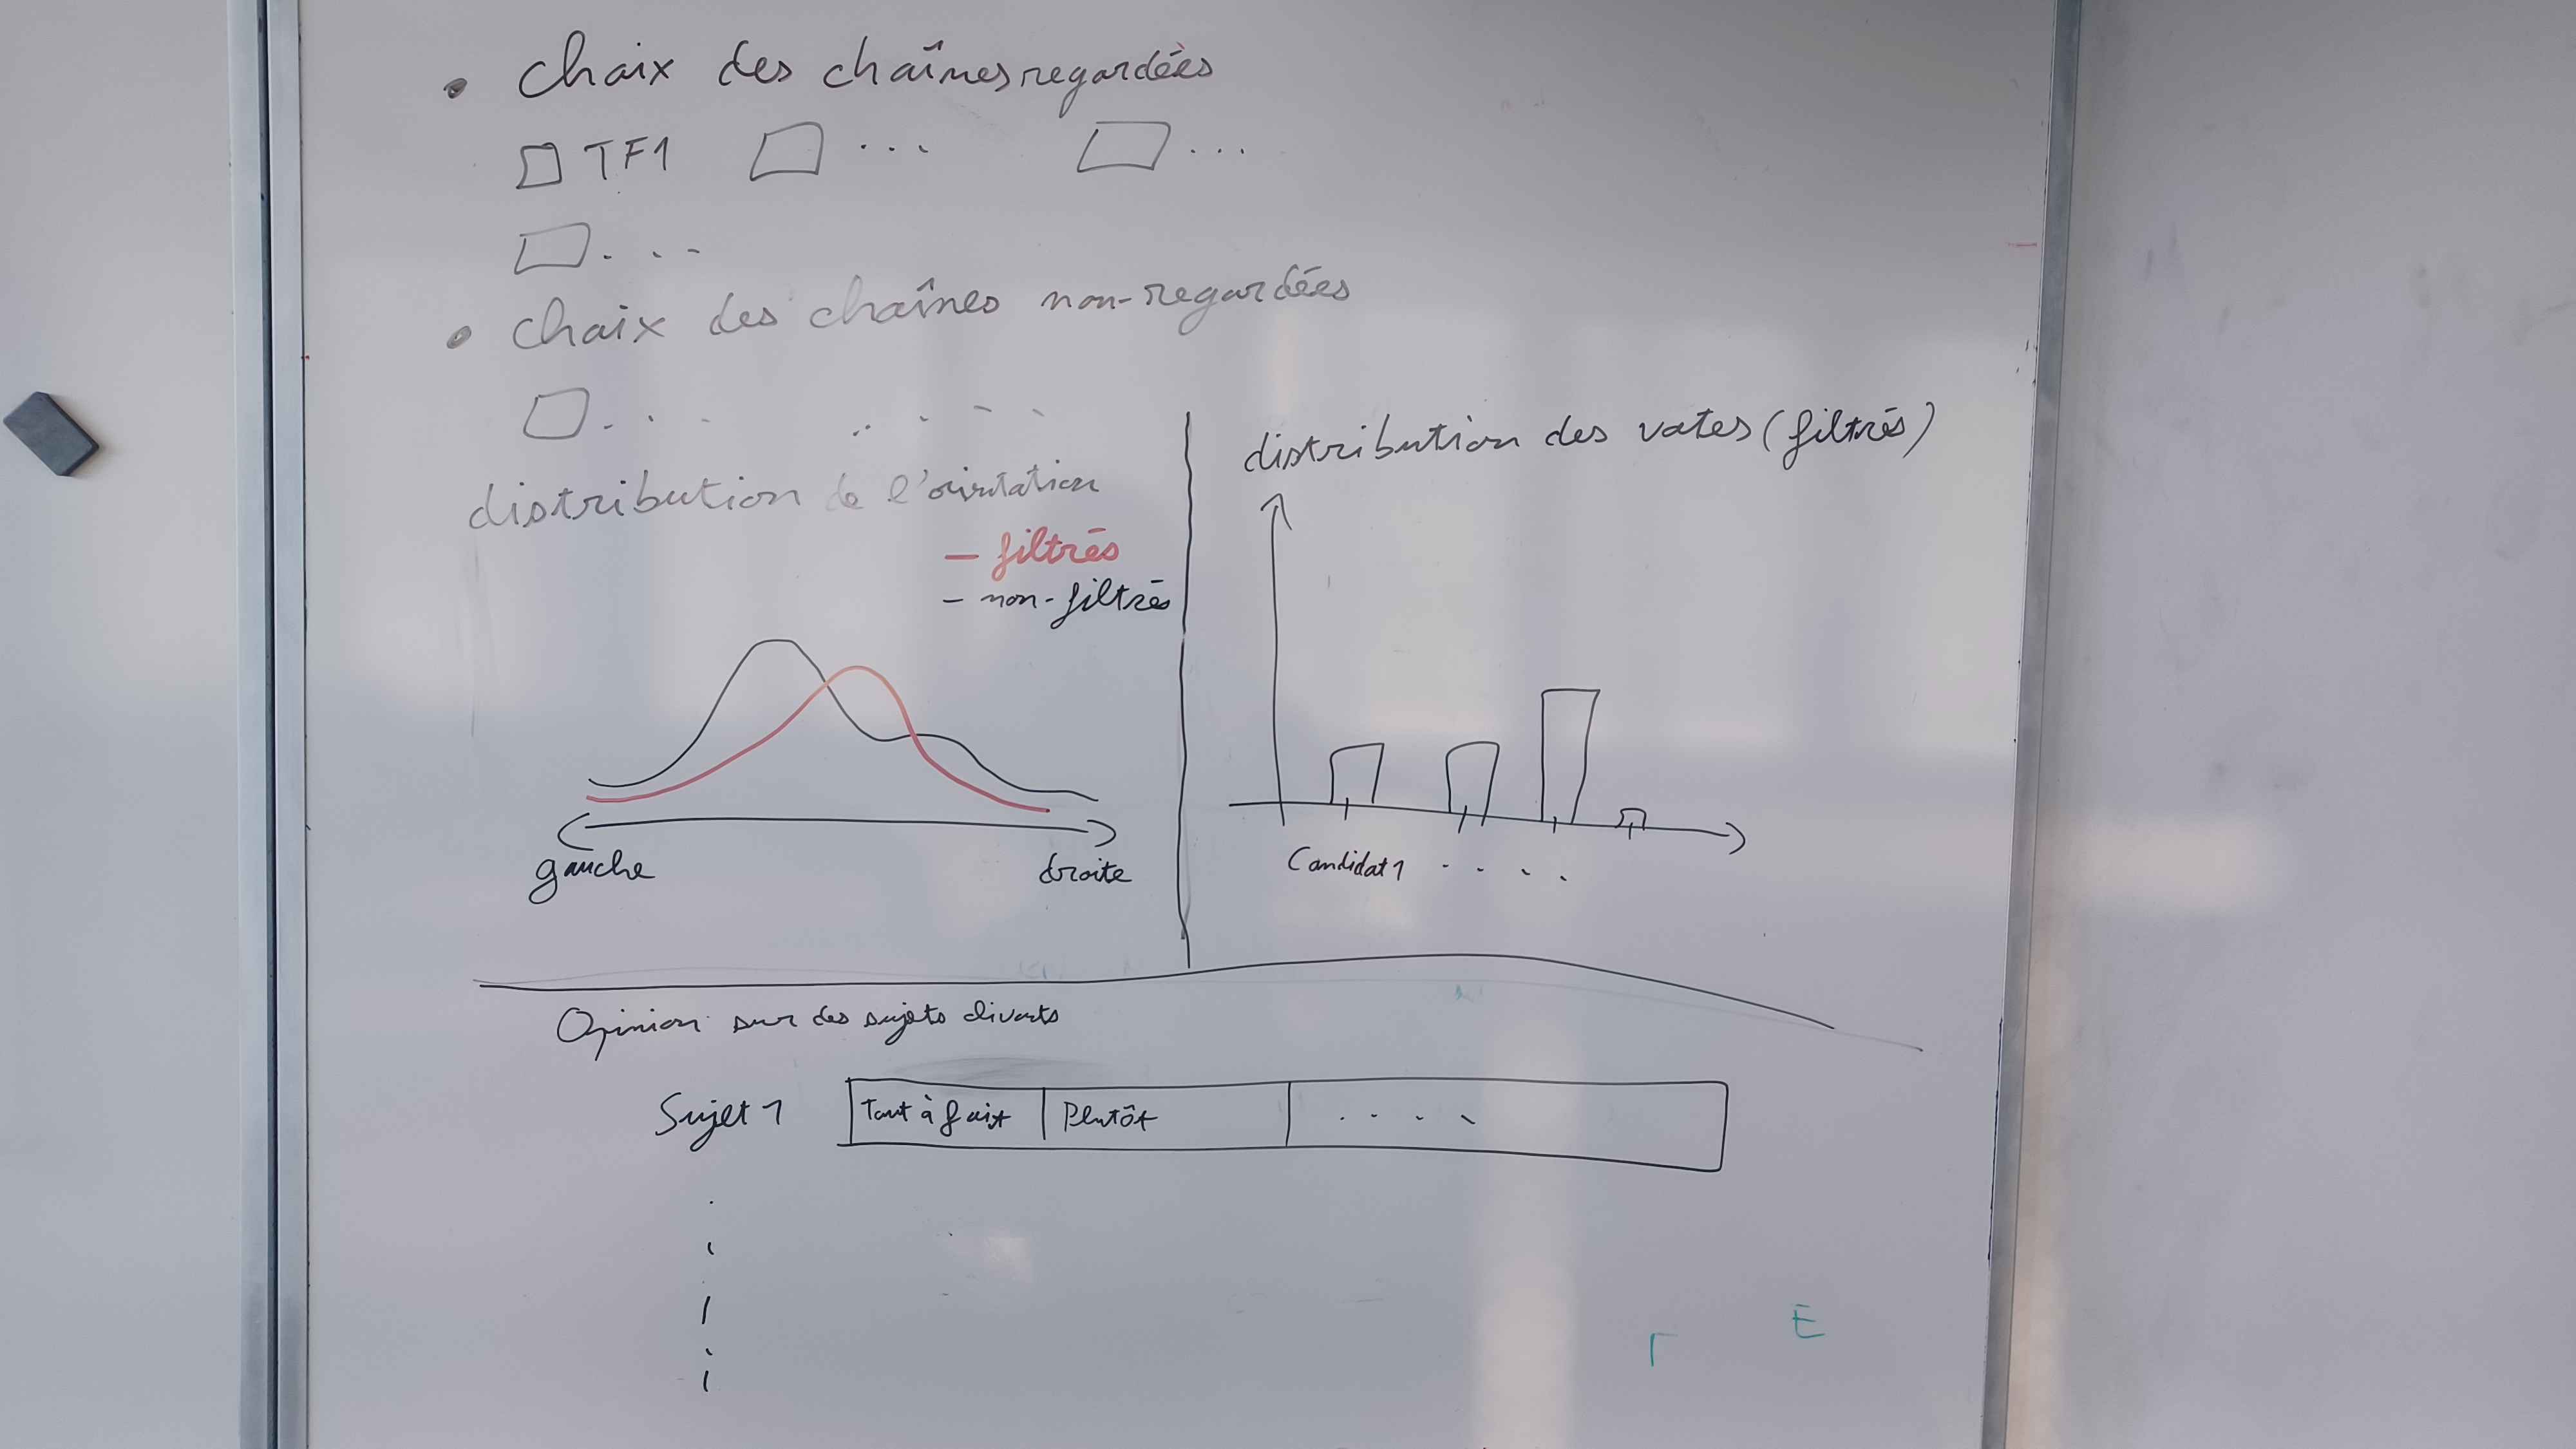 • choix des chaînes regardées
TF1 ... ...
...
• choix des chaînes non-regardées
... ...
distribution de l'orientation
– filtrés
– non-filtrés
gauche droite
distribution des votes (filtrés)
Candidat 1 ....
Opinion sur des sujets divers
Sujet 1 Tout à fait Plutôt ....
E